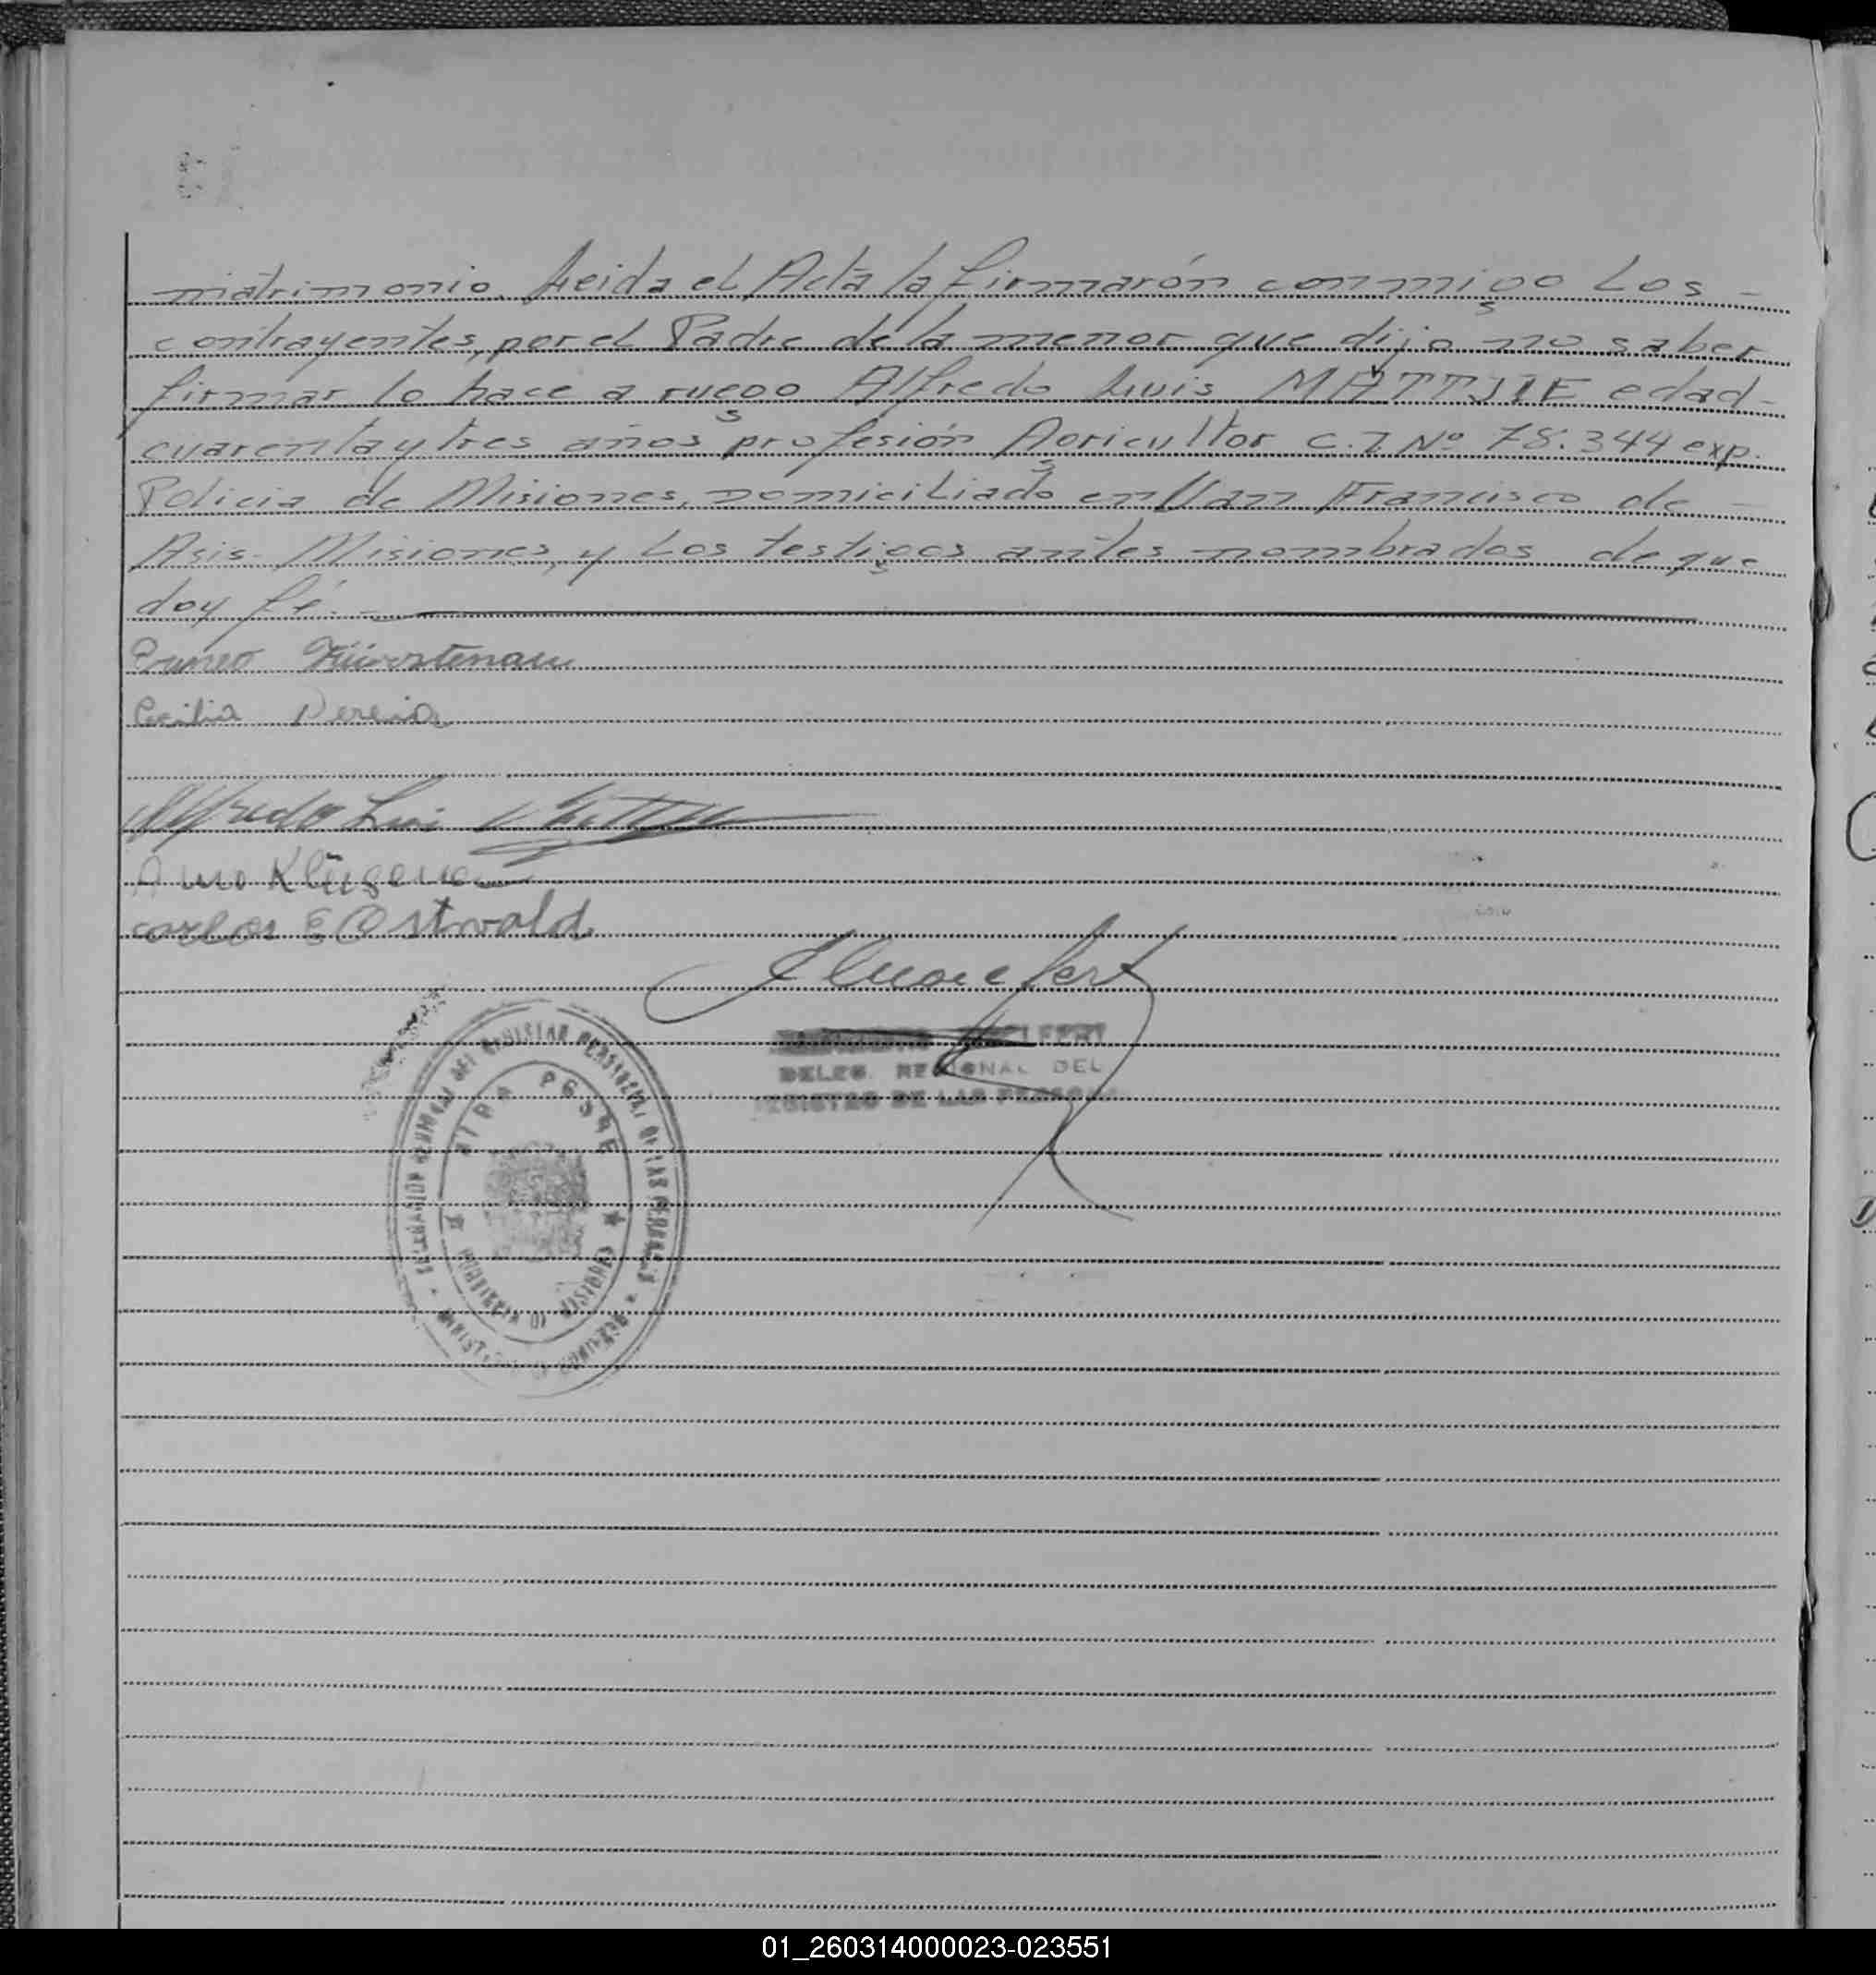 matrimonio. Leida el Acta la firmarón conmigo Los -
contrayentes, por el Padre de la menor que dijo no saber
firmar lo hace a ruego Alfredo Luis MATTJIE edad -
cuarenta y tres años profesión Agricultor C.I. Nº 78.344 exp.
Policia de Misiones, Domiciliado en San Francisco de -
Asis - Misiones, y Los testigos antes nombrados de que
doy fé. -
Bruno Fürstenau
Cecilia Pereira
Alfredo Luis
Arno
Carlos E Ostwald
DELEG. REGIONAL DEL
REGISTRO DE LAS PERSONAS
01_260314000023-023551